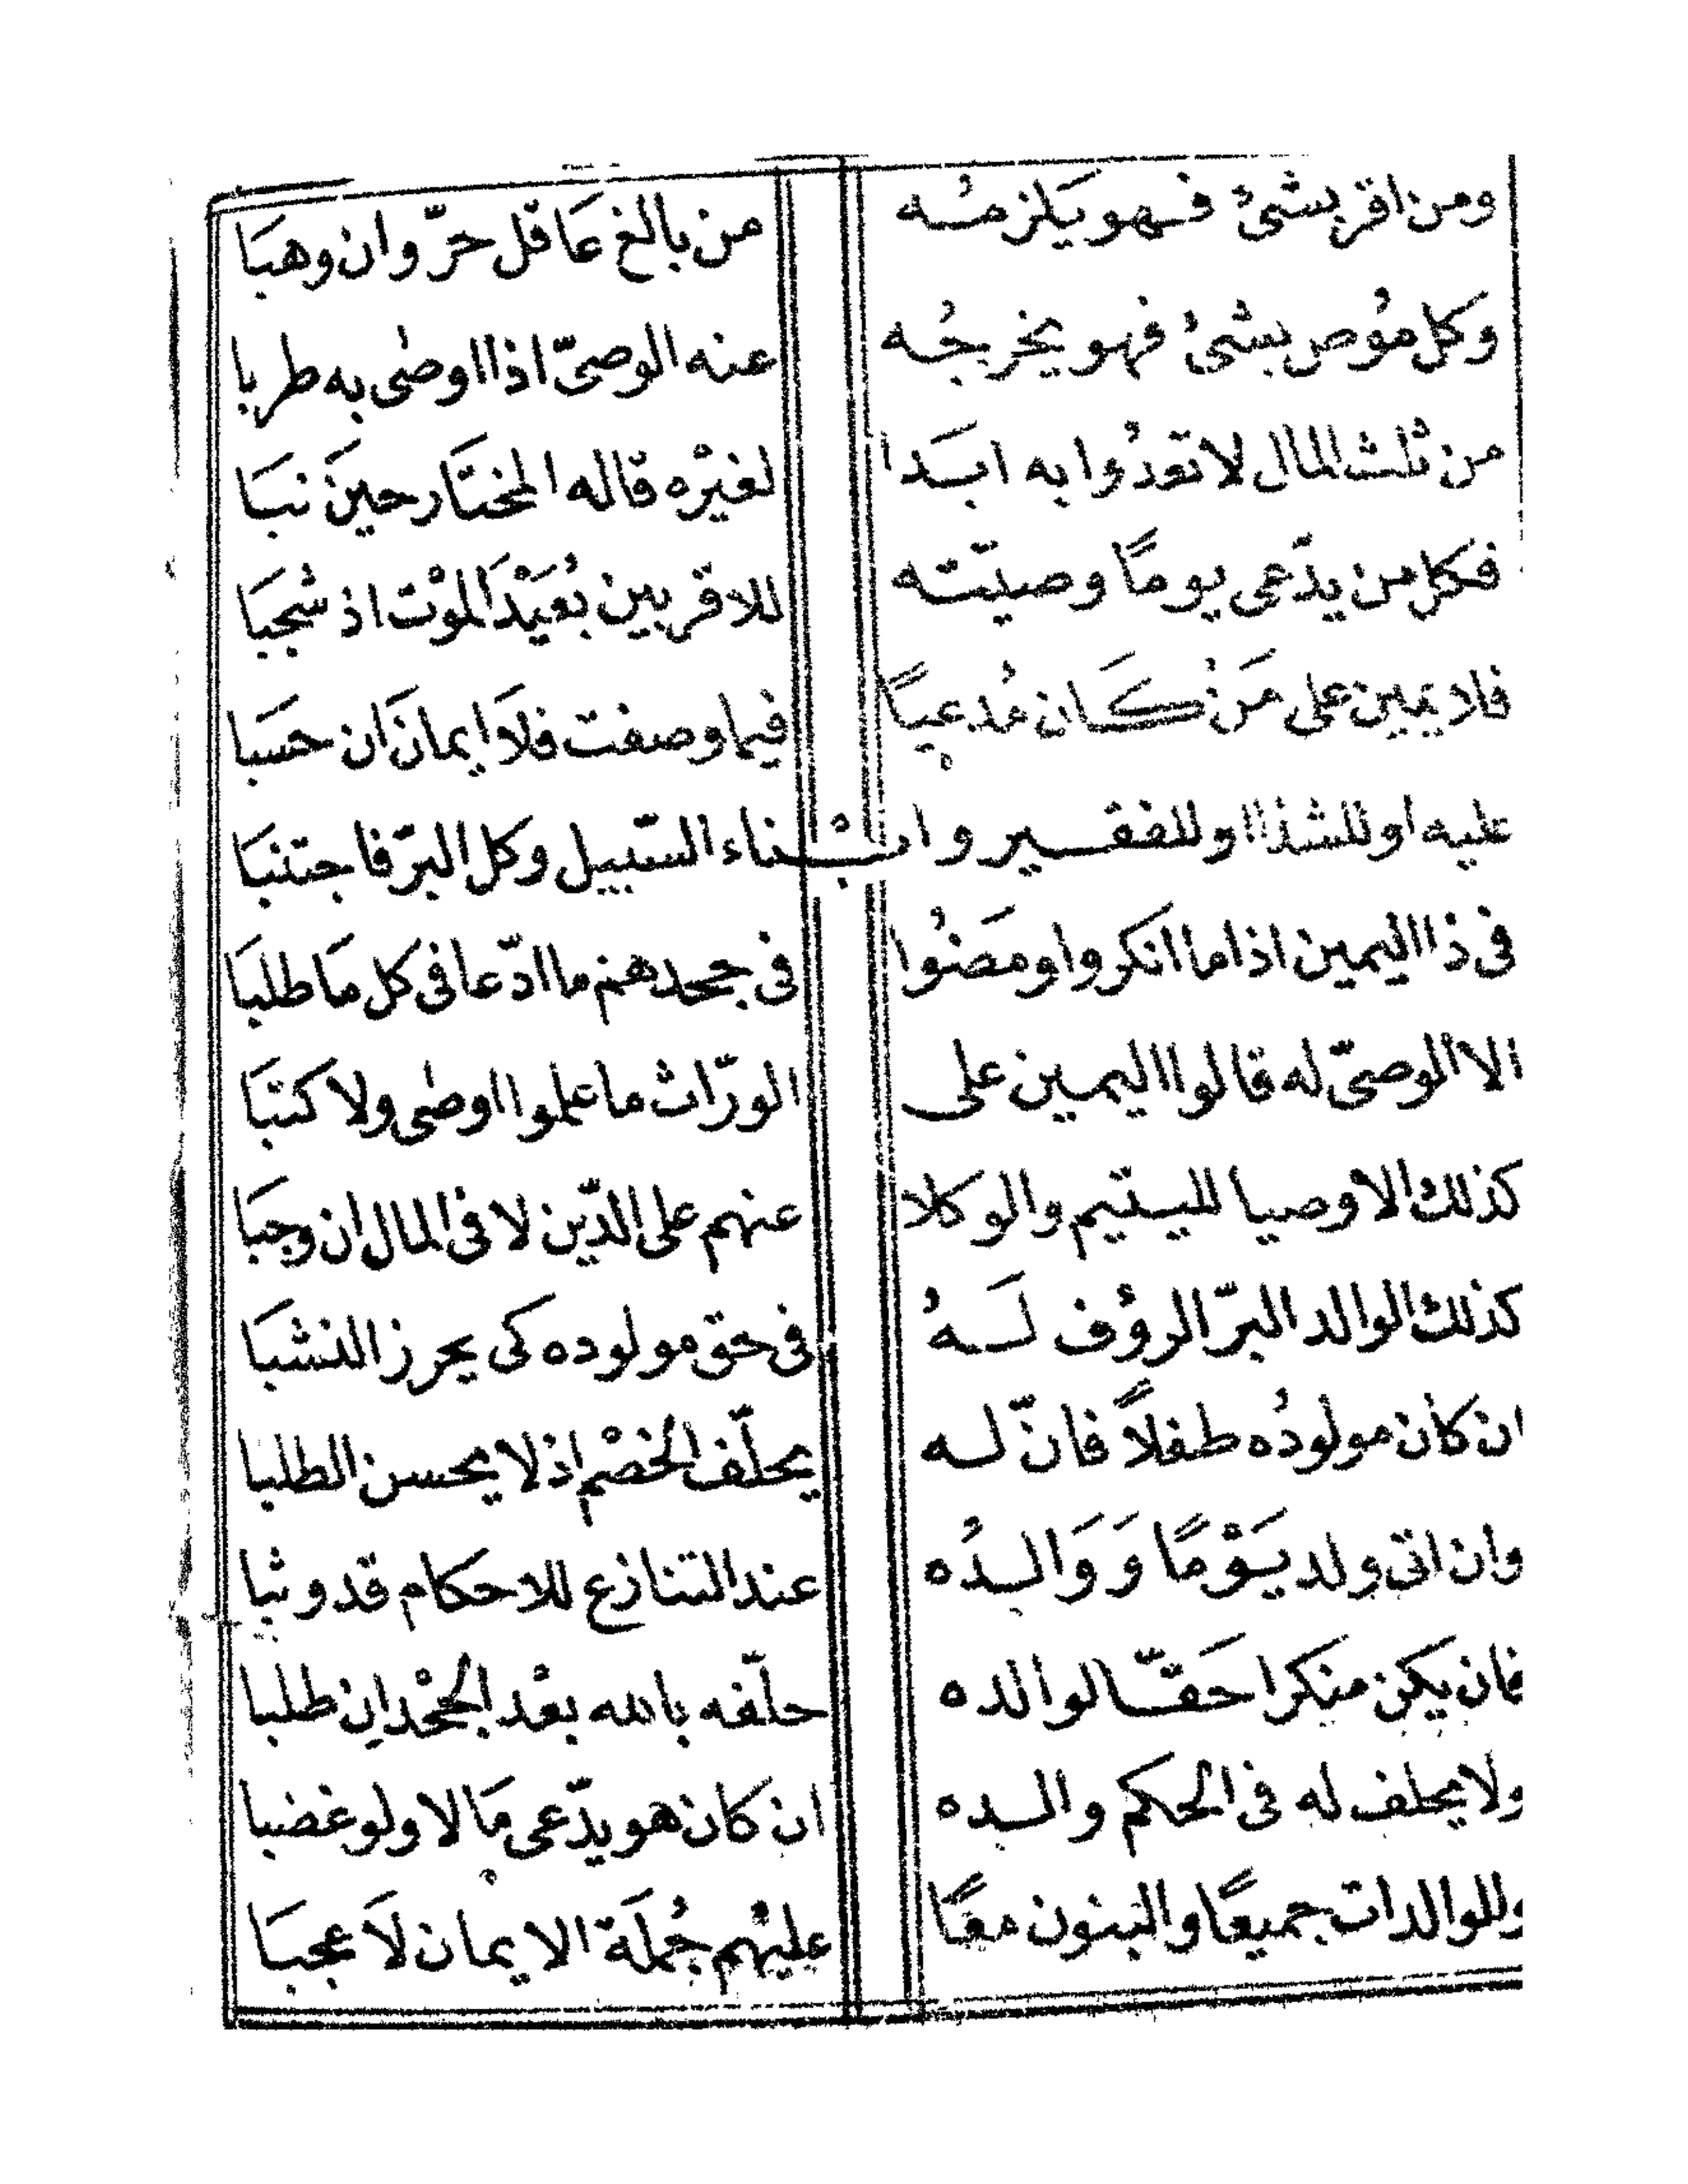 ومن اقر بشىء فهو يَلزمُه من بالغ عَاقل حرّ وان وهبَا
وكل مُوص بشىء فهو يخرجُه عنه الوصىّ اذا اوصٰى به طربا
من ثلث المال لا تعدُوا به ابَدا لغيْره قاله المختَار حينَ نبَا
فكل من يدّعى يومًا وصيّته للاقربين بُعَيْدَ الموْت اذ شجبَا
فلا يمين على مَنْ كَان مُدعيًا فيما وصفت فلَا ايمانَ ان حسَبا
عليه او للشذا او للفقير وابْناء السّبيل وكل البرّ فاجتنبَا
فى ذا اليمين اذا ما انكروا ومضَوُا فى جحدهم ما ادّعا فى كل مَا طلبَا
الا الوصىّ له قالوا اليمين على الورّاث ما علموا اوصٰى ولا كتبَا
كذلك الاوصيا لليتيم والوكلا عنهم على الدّين لا فى المال ان وجبَا
كذلك الوالد البرّ الرؤف لَهُ فى حق مولوده كى يحرز النشبَا
ان كان مولودُه طفلًا فانّ له يحلّف الخصْم اذ لا يحسن الطلبا
وان اتى ولد يَوْمًا وَوَالدُه عند التنازع للاحكام قد وثبا
فان يكن منكرا حَقّا لوالده حلّفه بالله بعْد الجحْد ان طلبا
ولا يحلف له فى الحكم والده ان كان هو يدّعى مَالا ولو غضبا
وللوالدات جميعًا والبنون معًا عليْهم جُملَة الايمان لَا عجبَا